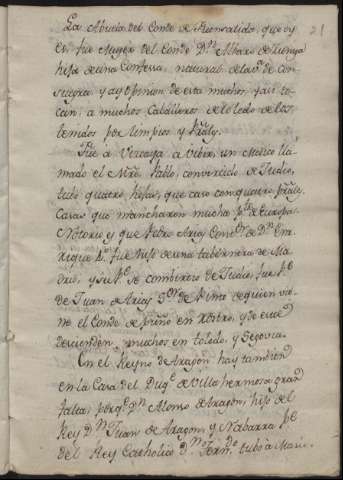 21
La Abuela del Conde de Fuensalida, que oy
es, fue Muger del Conde Dn. Albaro de Luna y a
hija de una Confessa, natural de la va. de Con-
suegra y ay opinion de esta muchos, y assi to-
can, a muchos Caballeros de toledo de los
tenidos por limpios y
Fue a Vizcaya a vibir, un Medico lla-
mado el Mro. Pablo, convertido de Judio,
tubo quatro hijas, que caso con quatro
Casas que mancharon mucha pte. de Europa.
Notorio es que Pedro Arias de Dn. En-
rique 4o. fue hijo de una tabernera de Ma-
drid, y su Pe. se combirtio de Judio, fue Pe.
de Juan de Arias Sor. de de quien vie-
ne el Conde de puño en rostro, y de este
descienden muchos en toledo, y Segovia.
En el Reyno de Aragon hay tambien
en la Casa del Duqe. de Villahermosa gran
falta, porqe. Dn. Alonso de Aragon, hijo del
Rey Dn. Juan de Aragon, y Nabarra pe.
del Rey Catholico Dn. Ferndo. tubo a Maria